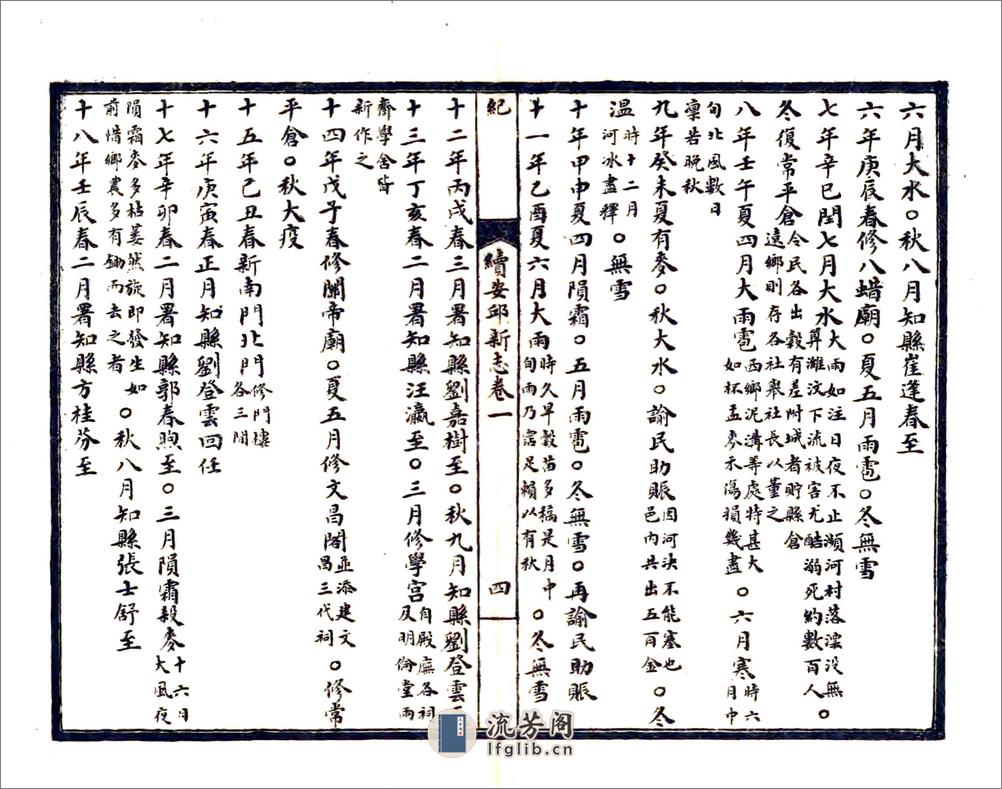 六月大水○秋八月知縣崔逢春至
六年庚辰春修八蜡廟○夏五月雨雹○冬無雪
七年辛巳閏七月大水大雨如注日夜不止瀕河村落漂没無算濰汶下流被害尤酷溺死約數百人○
冬復常平倉令民各出穀有差附城者貯縣倉遠鄉則存各社舉社長以董之
八年壬午夏四月大雨雹西鄉泥溝等處特甚大如杯盂麥禾傷損幾盡○六月寒時六月中
旬北風數日凜若晚秋
九年癸未夏有麥○秋大水○諭民助賑因河決不能塞也邑內共出五百金○冬
溫時十二月河冰盡釋○無雪
十年甲申夏四月隕霜○五月雨雹○冬無雪○再諭民助賑
十一年乙酉夏六月大雨時久旱穀苗多槁是月中旬雨乃霑足賴以有秋○冬無雪
紀 續安邱新志卷一 四
十二年丙戌春三月署知縣劉嘉樹至○秋九月知縣劉登雲至
十三年丁亥春二月署知縣汪瀛至○三月修學宮自殿廡各祠及明倫堂兩
齋學舍皆新作之
十四年戊子春修關帝廟○夏五月修文昌閣並添建文昌三代祠○修常
平倉○秋大疫
十五年己丑春新南門北門修門樓各三間
十六年庚寅春正月知縣劉登雲回任
十七年辛卯春二月署知縣郭春煦至○三月隕霜殺麥十六日大風夜
隕霜麥多枯萎然旋即發生如前惜鄉農多有鋤而去之者○秋八月知縣張士舒至
十八年壬辰春二月署知縣方桂芬至
流芳阁
lfglib.cn